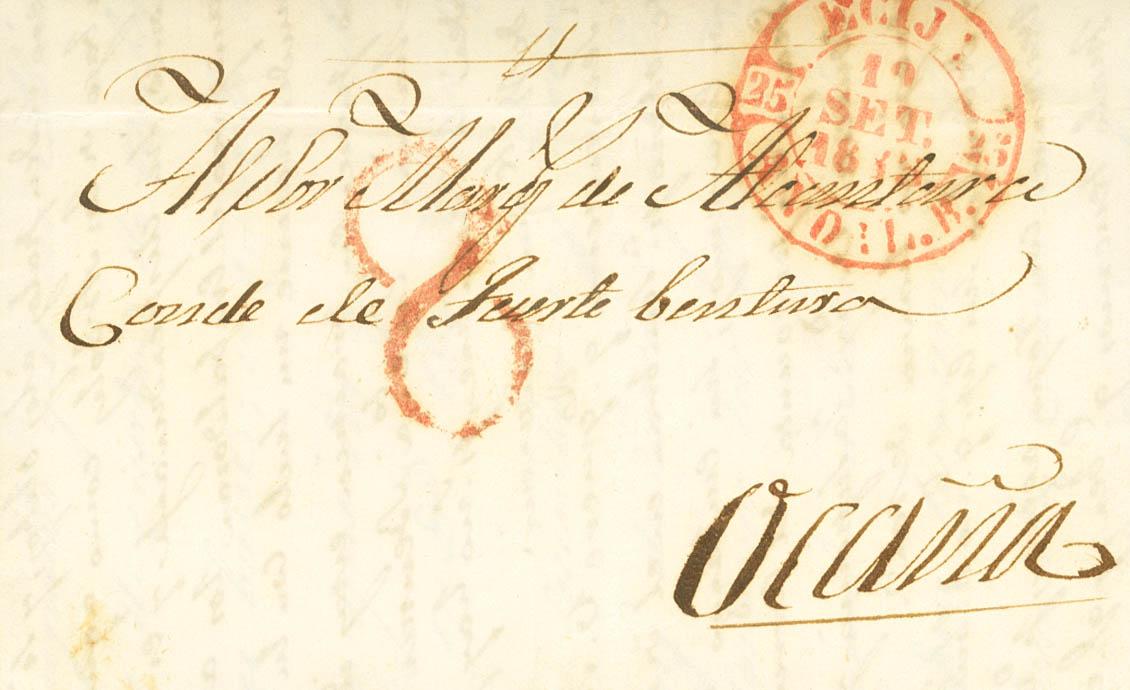 ECIJA
25 19 25
SET.
18
O:L.R.
Al Sor Marq de Alcantara
8
Conde de Fuerte bentura
Ocaña